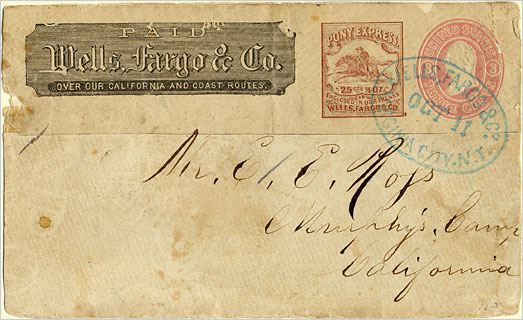 PAID
Wells, Fargo & Co.
OVER OUR CALIFORNIA AND COAST ROUTES.
PONY EXPRESS
25 CTS PER ½ OZ.
ENCLOSED IN OUR FRANKS
WELLS, FARGO & CO.
UNITED STATES
WELLS, FARGO & CO.
OCT 11
CITY. N.T.
Mr. E. E. Ross
Murphy's Camp
California